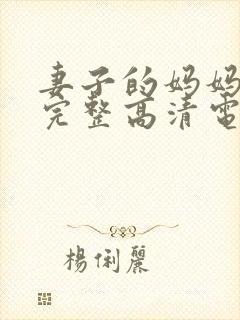 妻子的妈妈
完整高清電
楊俐麗